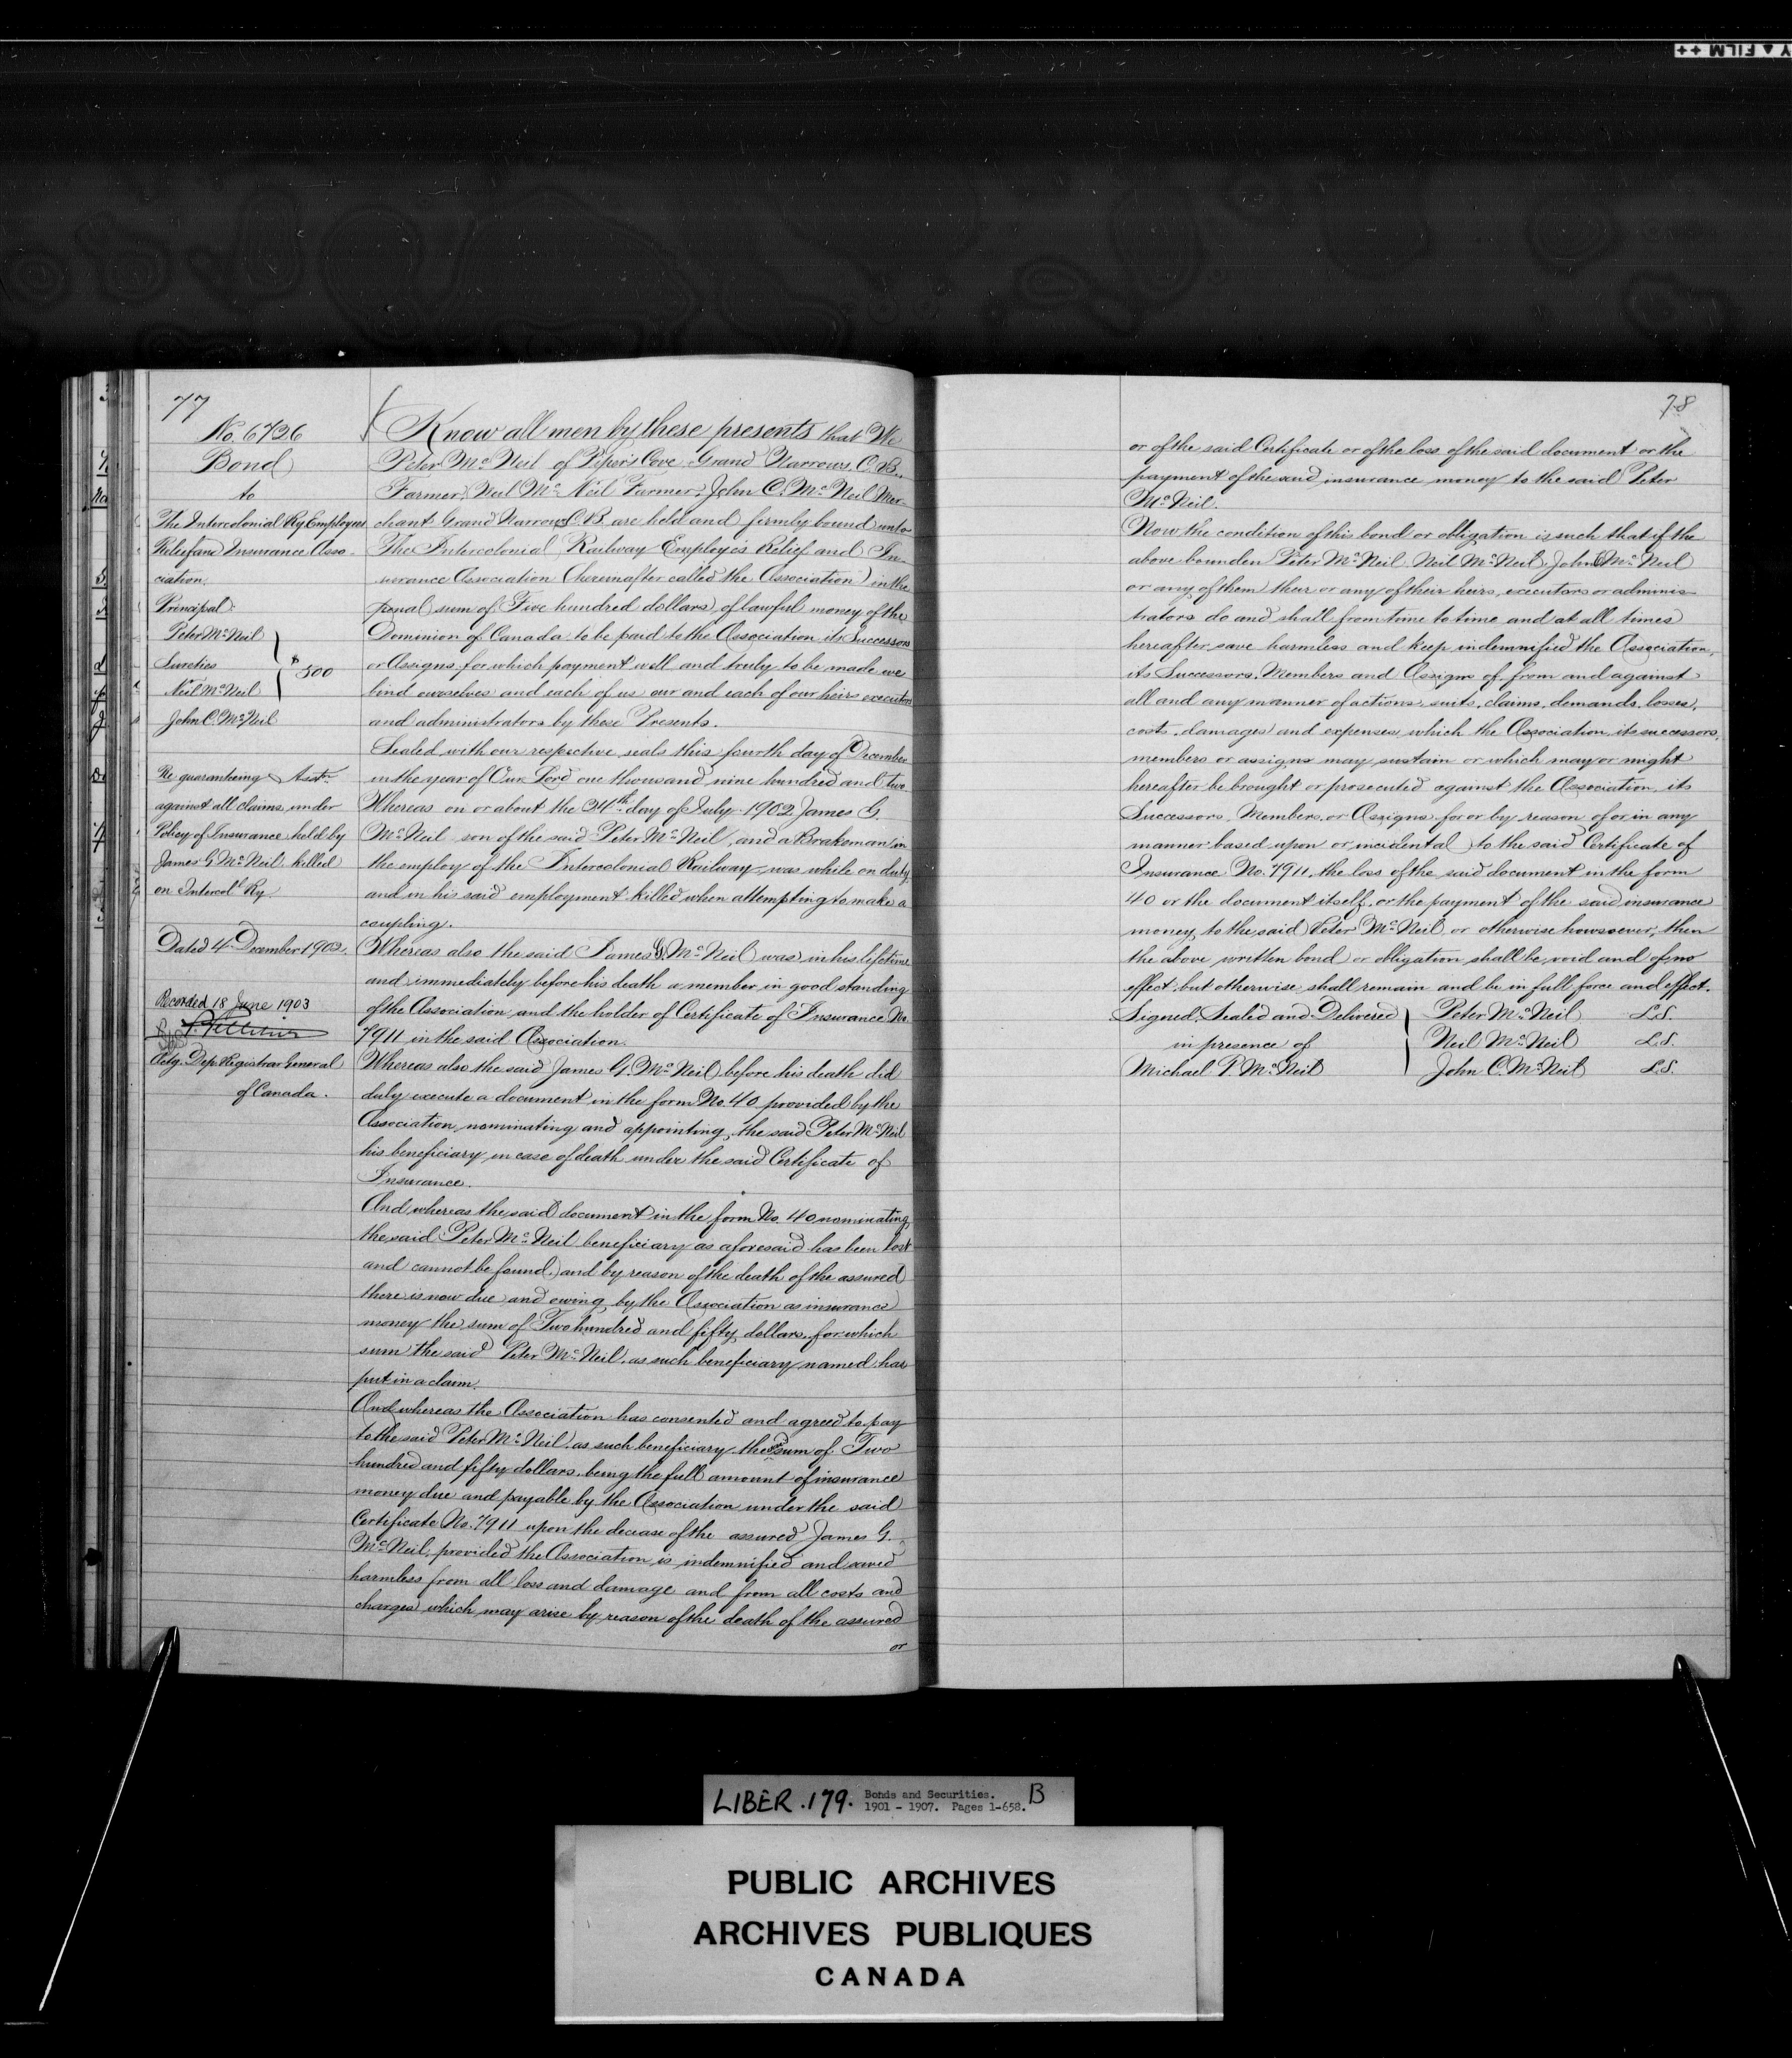 77
No. 6726
Bond
to
The Intercolonial Ry Employees
Relief and Insurance Asso-
ciation.
Principal:
Peter McNeil
Sureties
$500
Neil McNeil
John C. McNeil
Re guaranteeing Asstn
against all claims under
Policy of Insurance held by
James G McNeil killed
on Intercol Ry.
Dated 4 December 1902.
Recorded 18 June 1903
Actg. Dep. Registrar General
of Canada.
Know all men by these presents that We
Peter McNeil of Piper's Cove Grand Narrows, C.B.
Farmer, Neil McNeil Farmer, John C. McNeil Mer-
chant Grand Narrows C.B. are held and firmly bound unto
The Intercolonial Railway Employés Relief and In-
surance Association (hereinafter called the Association) in the
penal sum of Five hundred dollars, of lawful money of the
Dominion of Canada to be paid to the Association its Successors
or Assigns for which payment well and truly to be made we
bind ourselves and each of us our and each of our heirs executors
and administrators by these Presents.
Sealed with our respective seals this fourth day of December
in the year of Our Lord one thousand nine hundred and two.
Whereas on or about the day of July 1902 James G.
McNeil son of the said Peter McNeil, and a Brakeman in
the employ of the Intercolonial Railway, was while on duty
and in his said employment killed when attempting to make a
coupling.
Whereas also the said James G. McNeil was in his lifetime
and immediately before his death a member in good standing
of the Association and the holder of Certificate of Insurance No.
7911 in the said Association.
Whereas also the said James G. McNeil before his death did
duly execute a document in the form No. 40 provided by the
Association nominating and appointing the said Peter McNeil
his beneficiary in case of death under the said Certificate of
Insurance.
And whereas the said document in the form No. 40 nominating
the said Peter McNeil beneficiary as aforesaid has been lost
and cannot be found, and by reason of the death of the assured
there is now due and owing by the Association as insurance
money the sum of Two hundred and fifty dollars, for which
sum the said Peter McNeil, as such beneficiary named has
put in a claim.
And whereas the Association has consented and agreed to pay
to the said Peter McNeil, as such beneficiary the sum of Two
hundred and fifty dollars, being the full amount of insurance
money due and payable by the Association under the said
Certificate No. 7911 upon the decease of the assured James G.
McNeil, provided the Association is indemnified and saved
harmless from all loss and damage and from all costs and
charges which may arise by reason of the death of the assured
or
78
or of the said Certificate or of the loss of the said document or the
payment of the said insurance money to the said Peter
McNeil.
Now the condition of this bond or obligation is such that if the
above bounden Peter McNeil, Neil McNeil, John C McNeil
or any of them their or any of their heirs, executors or adminis-
trators do and shall from time to time and at all times
hereafter, save harmless and keep indemnified the Association,
its Successors, Members and Assigns of, from and against
all and any manner of actions, suits, claims, demands, losses,
costs, damages and expenses which the Association, its successors,
members or assigns may sustain or which may or might
hereafter be brought or prosecuted against the Association, its
Successors, Members, or Assigns for or by reason of or in any
manner based upon or incidental to the said Certificate of
Insurance No. 7911, the loss of the said document in the form
40 or the document itself, or the payment of the said insurance
money to the said Peter McNeil or otherwise howsoever, then
the above written bond or obligation shall be void and of no
effect, but otherwise shall remain and be in full force and effect.
Signed, Sealed and Delivered Peter McNeil L.S.
in presence of Neil McNeil L.S.
Michael P. McNeil John C. McNeil L.S.
LIBER. 179. Bonds and Securities. B
1901 - 1907. Pages 1-658.
PUBLIC ARCHIVES
ARCHIVES PUBLIQUES
CANADA